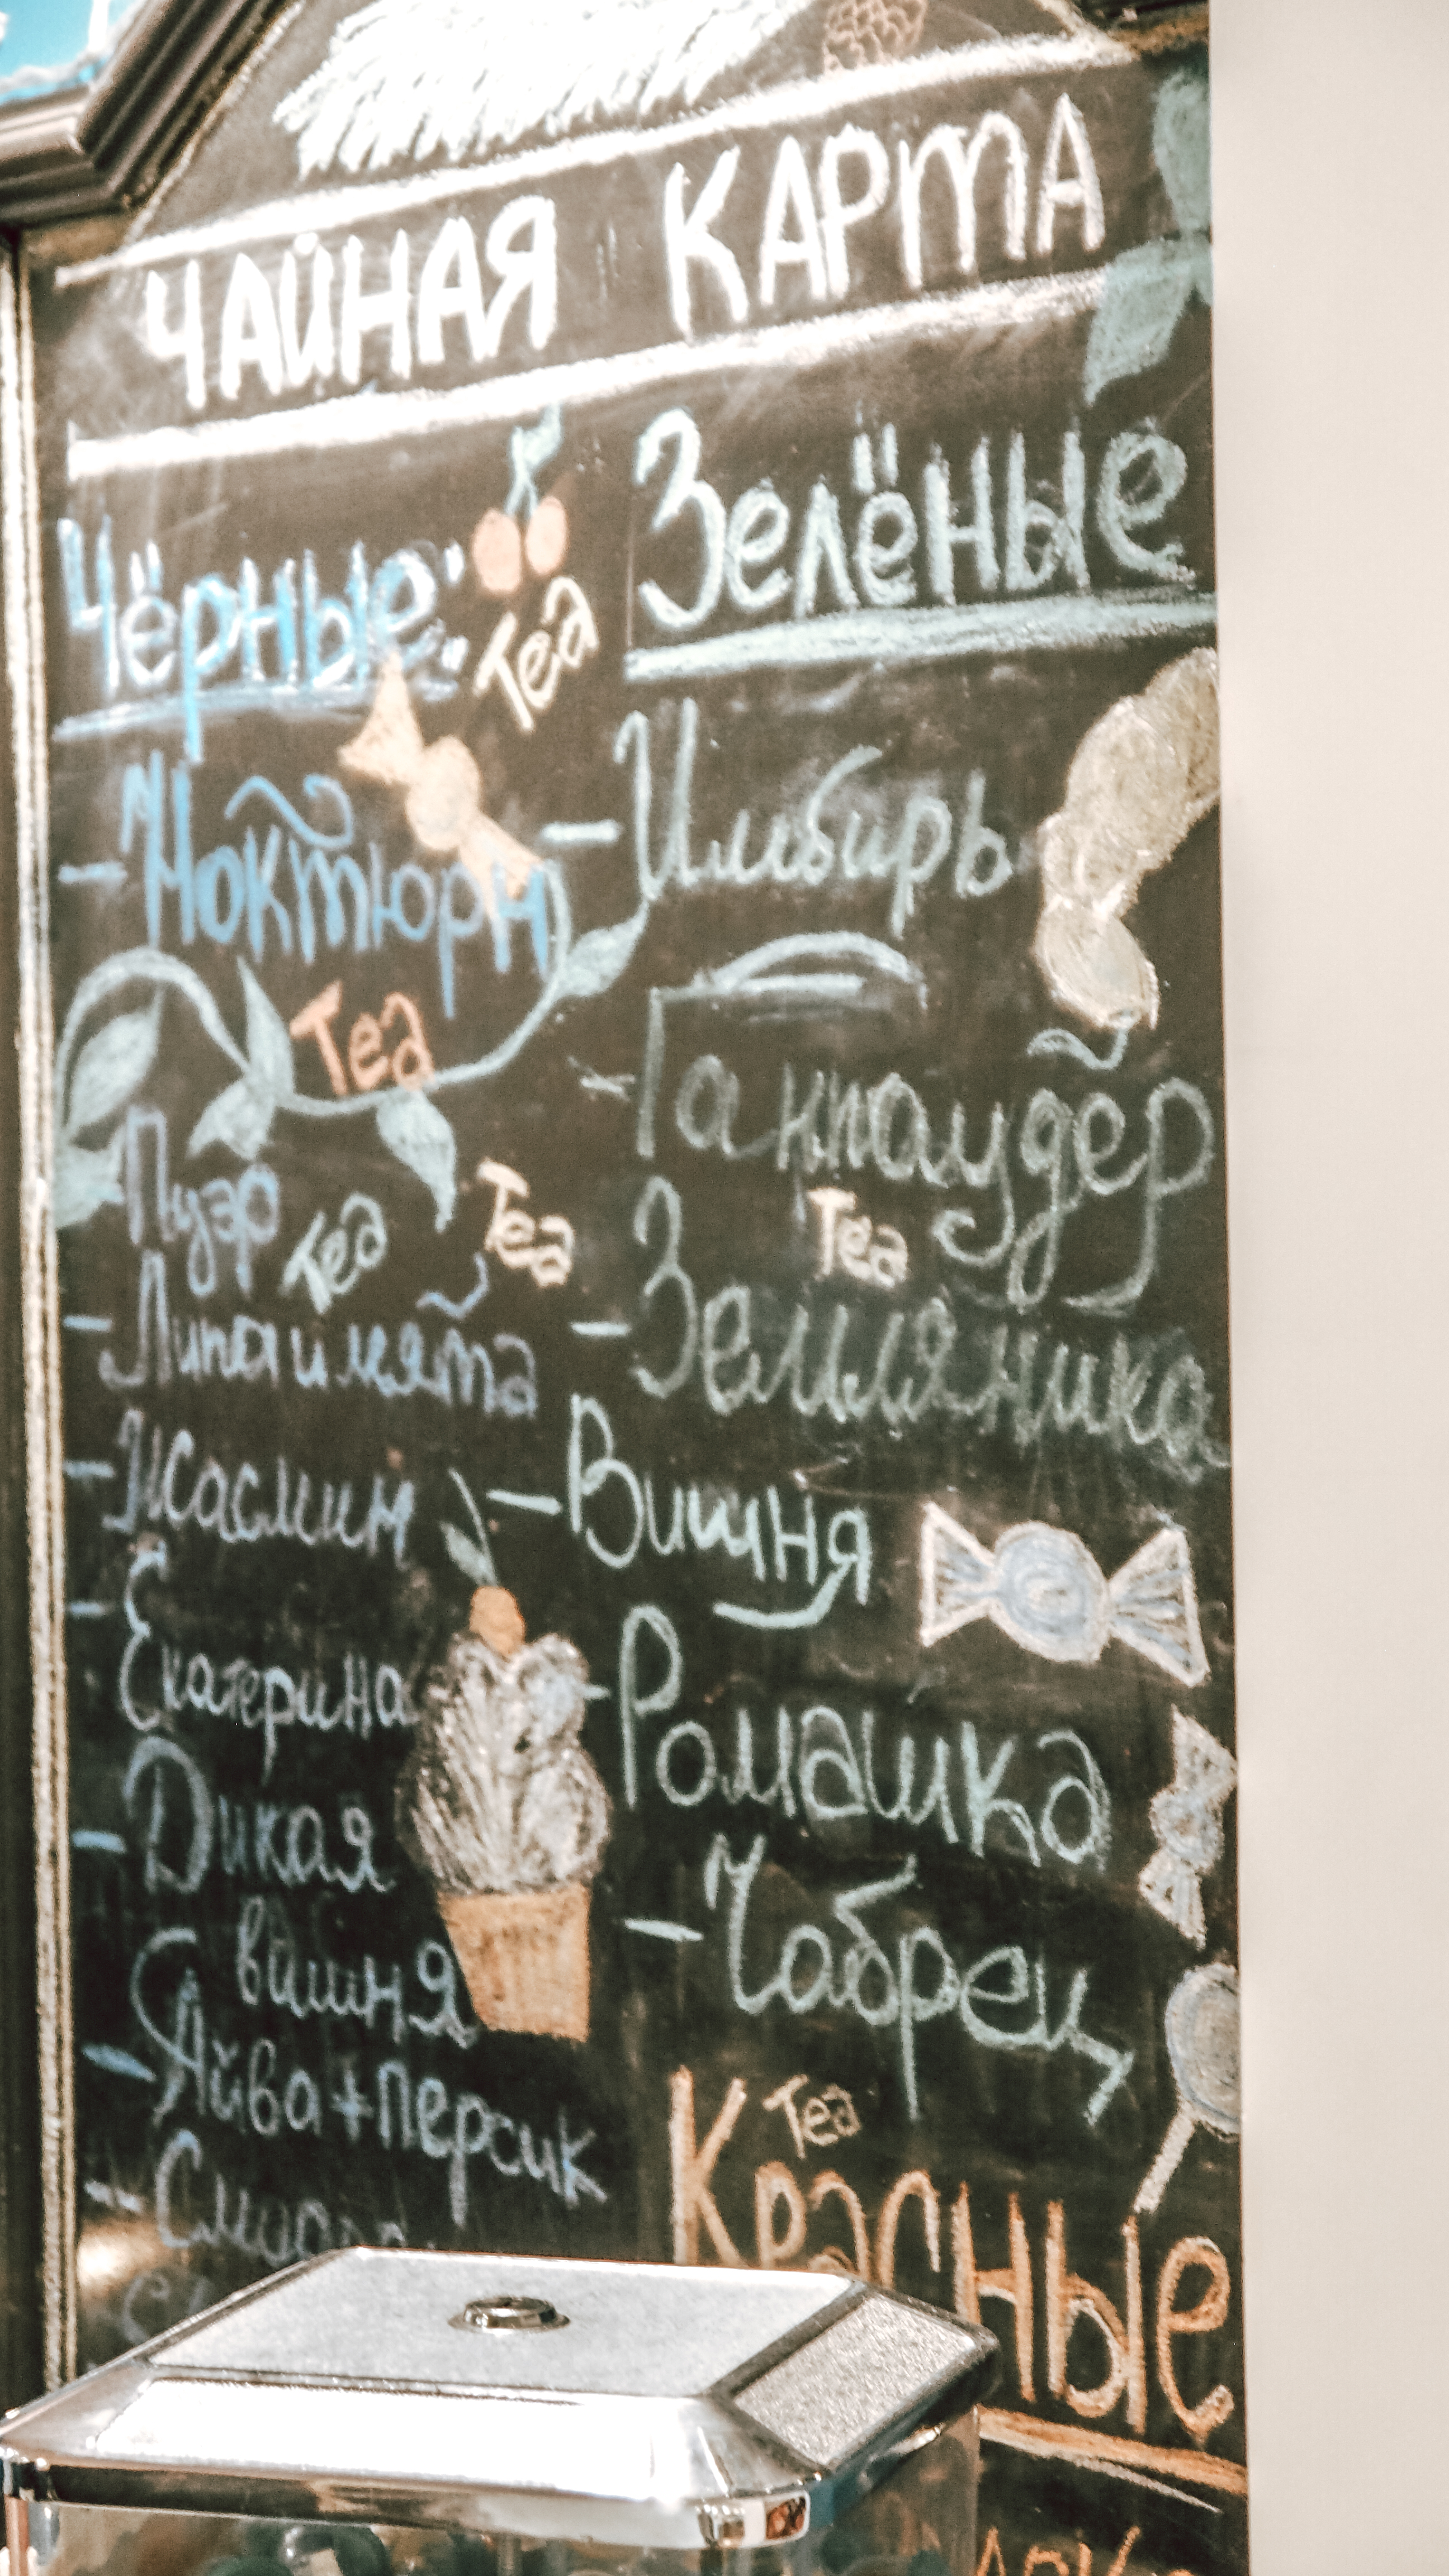 ЧАЙНАЯ КАРТА
Чёрные:
Tea
- Ноктюрн
Tea
Пуэр
Tea
Tea
- Липа и мята
- Жасмин
- Екатерина
- Дикая
вишня
- Айва+персик
Зелёные
- Имбирь
- Ганпаудер
Tea
- Земляника
- Вишня
- Ромашка
- Чабрец
Tea
Красные